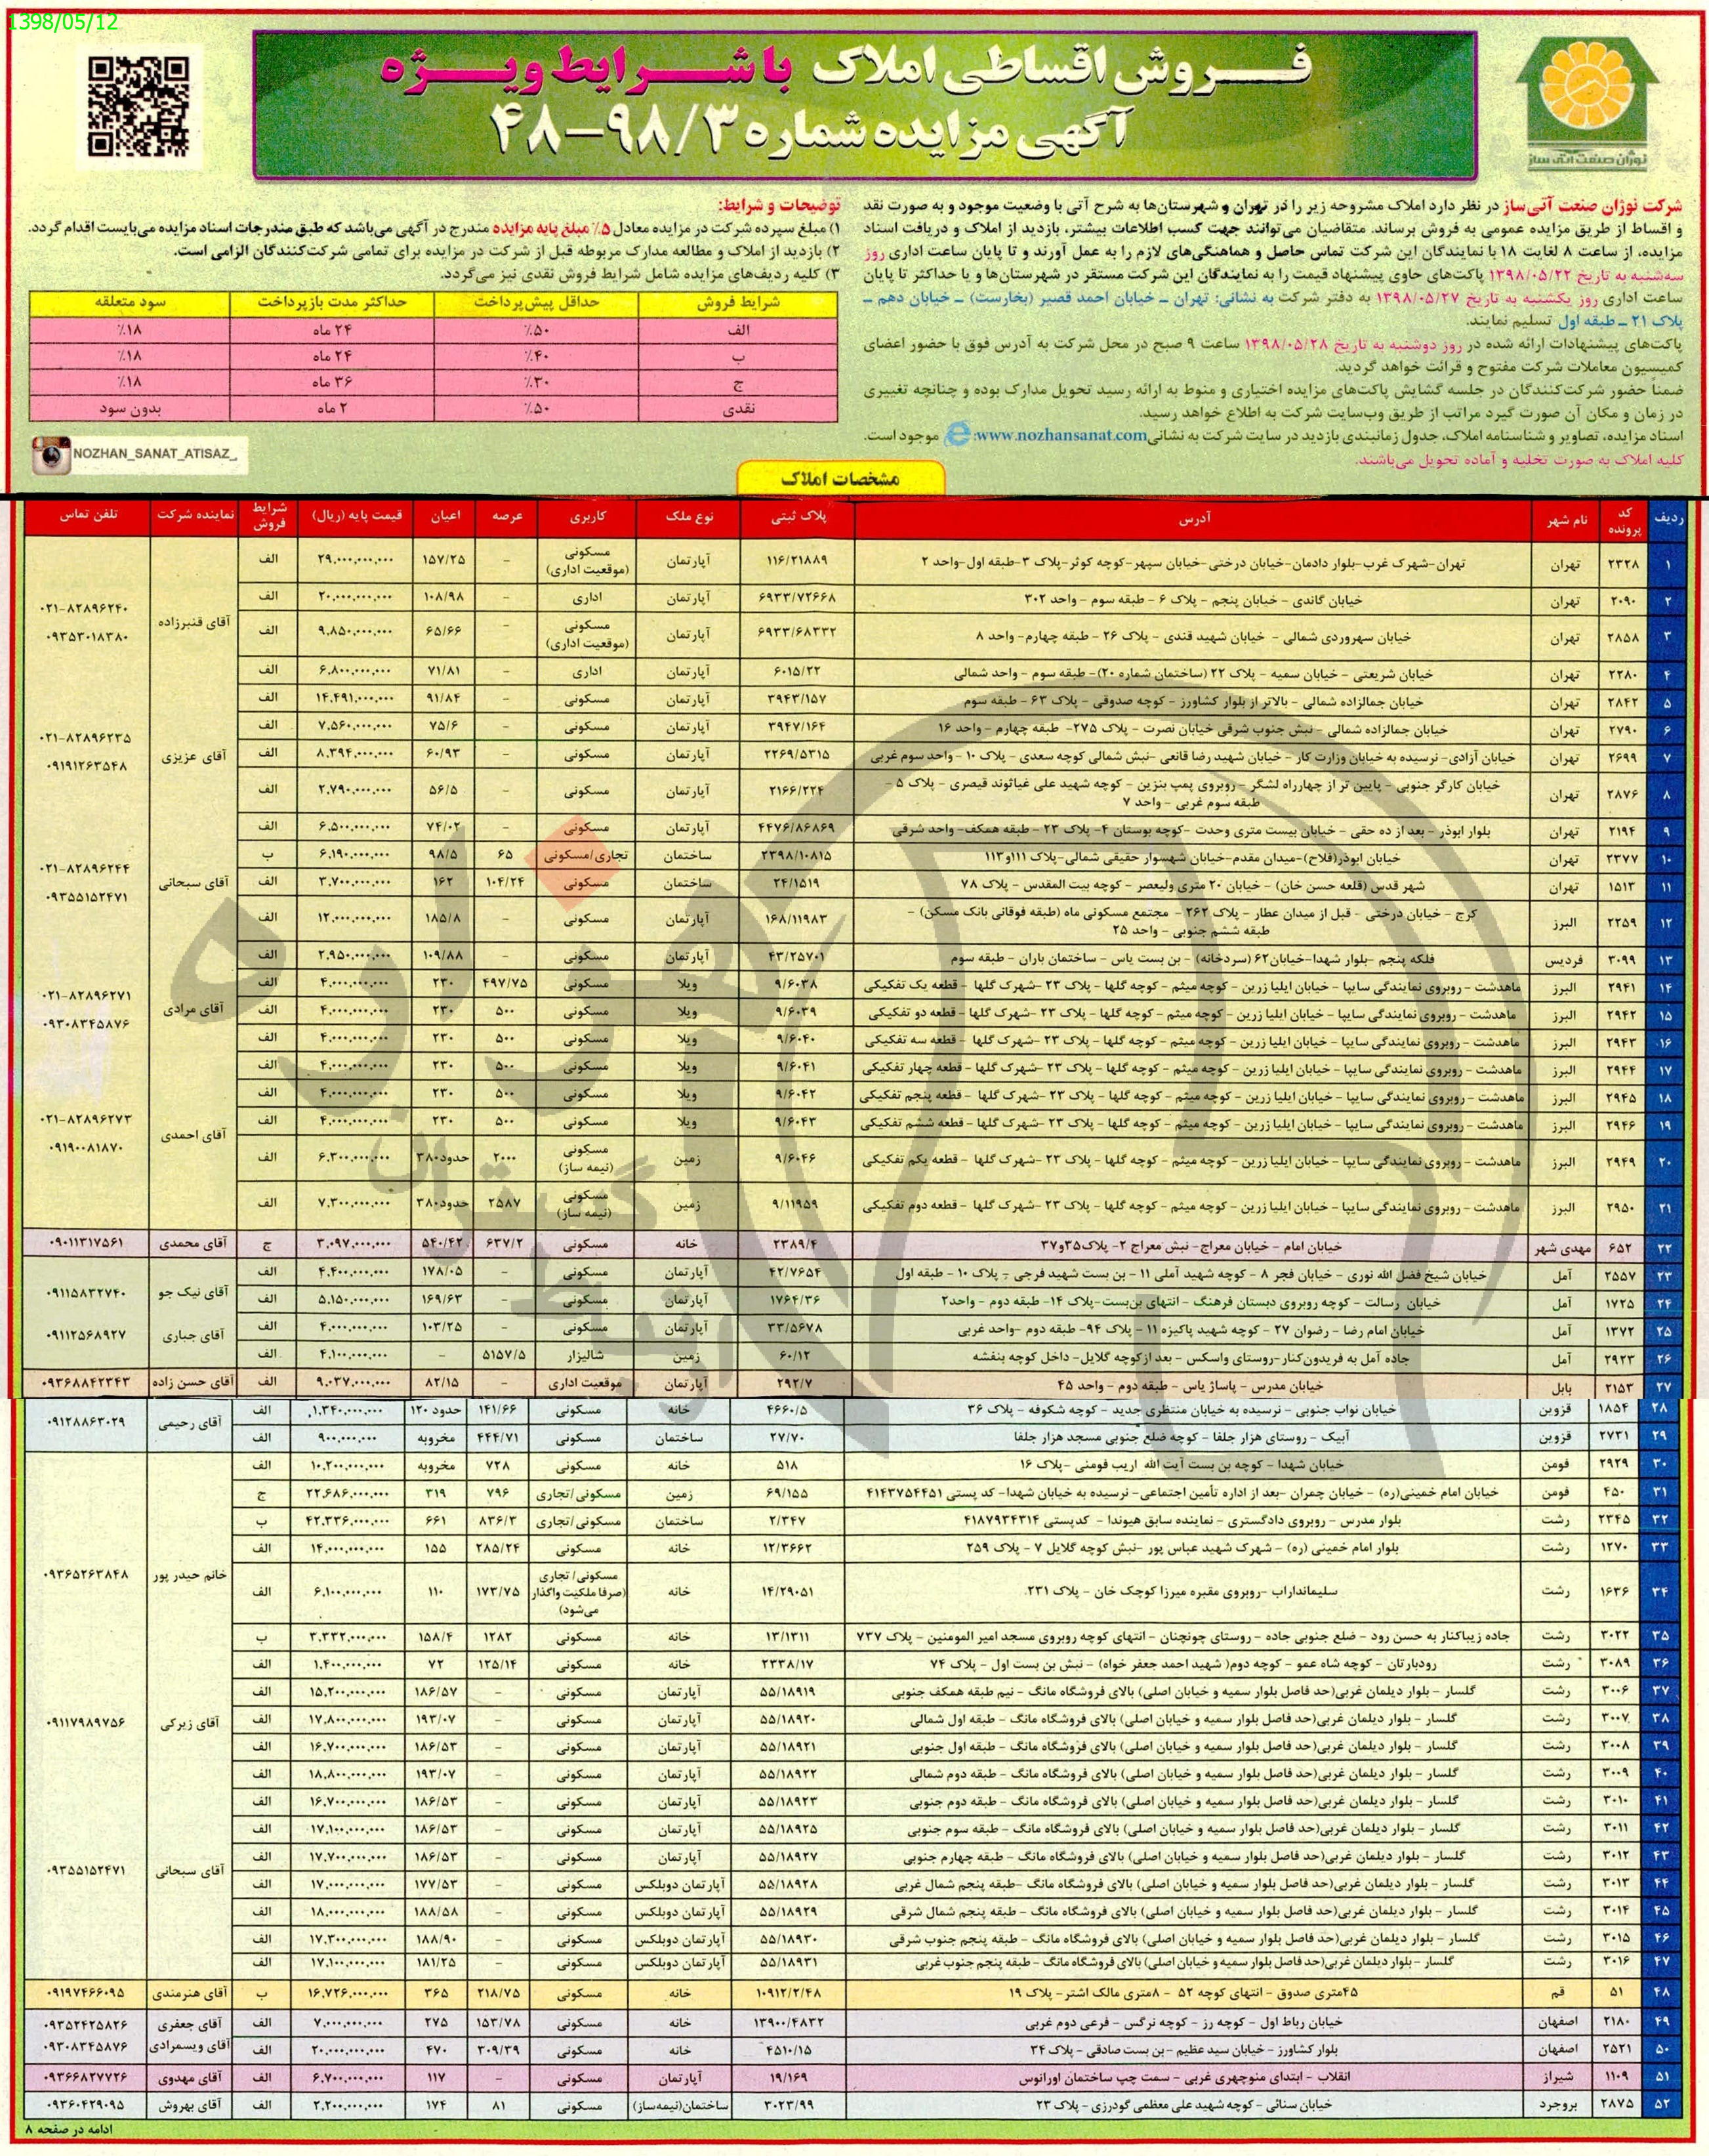 1398/05/12
فروش اقساطی املاک با شرایط ویژه
آگهی مزایده شماره ۴۸-۹۸/۳
نوژان صنعت آتی ساز
شرکت نوژان صنعت آتی‌ساز در نظر دارد املاک مشروحه زیر را در تهران و شهرستان‌ها به شرح آتی با وضعیت موجود و به صورت نقد
و اقساط از طریق مزایده عمومی به فروش برساند. متقاضیان می‌توانند جهت کسب اطلاعات بیشتر، بازدید از املاک و دریافت اسناد
مزایده، از ساعت ۸ لغایت ۱۸ با نمایندگان این شرکت تماس حاصل و هماهنگی‌های لازم را به عمل آورند و تا پایان ساعت اداری روز
سه‌شنبه به تاریخ ۱۳۹۸/۰۵/۲۲ پاکت‌های حاوی پیشنهاد قیمت را به نمایندگان این شرکت مستقر در شهرستان‌ها و یا حداکثر تا پایان
ساعت اداری روز یکشنبه به تاریخ ۱۳۹۸/۰۵/۲۷ به دفتر شرکت به نشانی: تهران ـ خیابان احمد قصیر (بخارست) ـ خیابان دهم ـ
پلاک ۲۱ ـ طبقه اول تسلیم نمایند.
پاکت‌های پیشنهادات ارائه شده در روز دوشنبه به تاریخ ۱۳۹۸/۰۵/۲۸ ساعت ۹ صبح در محل شرکت به آدرس فوق با حضور اعضای
کمیسیون معاملات شرکت مفتوح و قرائت خواهد گردید.
ضمناً حضور شرکت‌کنندگان در جلسه گشایش پاکت‌های مزایده اختیاری و منوط به ارائه رسید تحویل مدارک بوده و چنانچه تغییری
در زمان و مکان آن صورت گیرد مراتب از طریق وب‌سایت شرکت به اطلاع خواهد رسید.
اسناد مزایده، تصاویر و شناسنامه املاک، جدول زمانبندی بازدید در سایت شرکت به نشانی www.nozhansanat.com: موجود است.
کلیه املاک به صورت تخلیه و آماده تحویل می‌باشند.
توضیحات و شرایط:
۱) مبلغ سپرده شرکت در مزایده معادل ۵٪ مبلغ پایه مزایده مندرج در آگهی می‌باشد که طبق مندرجات اسناد مزایده می‌بایست اقدام گردد.
۲) بازدید از املاک و مطالعه مدارک مربوطه قبل از شرکت در مزایده برای تمامی شرکت‌کنندگان الزامی است.
۳) کلیه ردیف‌های مزایده شامل شرایط فروش نقدی نیز می‌گردد.
شرایط فروش حداقل پیش‌پرداخت حداکثر مدت بازپرداخت سود متعلقه
الف ۵۰٪ ۲۴ ماه ۱۸٪
ب ۴۰٪ ۲۴ ماه ۱۸٪
ج ۳۰٪ ۳۶ ماه ۱۸٪
نقدی ۵۰٪ ۲ ماه بدون سود
NOZHAN_SANAT_ATISAZ_
مشخصات املاک
ردیف کد پرونده نام شهر آدرس پلاک ثبتی نوع ملک کاربری عرصه اعیان قیمت پایه (ریال) شرایط فروش نماینده شرکت تلفن تماس
۱ ۲۳۲۸ تهران تهران-شهرک غرب-بلوار دادمان-خیابان درختی-خیابان سپهر-کوچه کوثر-پلاک ۳-طبقه اول-واحد ۲ ۱۱۶/۲۱۸۸۹ آپارتمان مسکونی (موقعیت اداری) - ۱۵۷/۲۵ ۲۹,۰۰۰,۰۰۰,۰۰۰ الف
۲ ۲۰۹۰ تهران خیابان گاندی - خیابان پنجم - پلاک ۶ - طبقه سوم - واحد ۳۰۲ ۶۹۳۳/۷۲۶۶۸ آپارتمان اداری - ۱۰۸/۹۸ ۲۰,۰۰۰,۰۰۰,۰۰۰ الف
آقای قنبرزاده ۰۲۱-۸۲۸۹۶۲۴۰ ۰۹۳۵۳۰۱۸۳۸۰
۳ ۲۸۵۸ تهران خیابان سهروردی شمالی - خیابان شهید قندی - پلاک ۲۶ - طبقه چهارم- واحد ۸ ۶۹۳۳/۶۸۳۳۲ آپارتمان مسکونی (موقعیت اداری) - ۶۵/۶۶ ۹,۸۵۰,۰۰۰,۰۰۰ الف
۴ ۲۲۸۰ تهران خیابان شریعتی - خیابان سمیه - پلاک ۲۲ (ساختمان شماره ۲۰)- طبقه سوم - واحد شمالی ۶۰۱۵/۲۲ آپارتمان اداری - ۷۱/۸۱ ۶,۸۰۰,۰۰۰,۰۰۰ الف
۵ ۲۸۴۲ تهران خیابان جمالزاده شمالی - بالاتر از بلوار کشاورز - کوچه صدوقی - پلاک ۶۳ - طبقه سوم ۳۹۴۳/۱۵۷ آپارتمان مسکونی - ۹۱/۸۴ ۱۴,۴۹۱,۰۰۰,۰۰۰ الف
۶ ۲۷۹۰ تهران خیابان جمالزاده شمالی - نبش جنوب شرقی خیابان نصرت - پلاک ۲۷۵- طبقه چهارم - واحد ۱۶ ۳۹۴۷/۱۶۴ آپارتمان مسکونی - ۷۵/۶ ۷,۵۶۰,۰۰۰,۰۰۰ الف
آقای عزیزی ۰۲۱-۸۲۸۹۶۲۳۵ ۰۹۱۹۱۲۶۳۵۴۸
۷ ۲۶۹۹ تهران خیابان آزادی- نرسیده به خیابان وزارت کار - خیابان شهید رضا قانعی -نبش شمالی کوچه سعدی - پلاک ۱۰ - واحد سوم غربی ۲۲۶۹/۵۳۱۵ آپارتمان مسکونی - ۶۰/۹۳ ۸,۳۹۴,۰۰۰,۰۰۰ الف
۸ ۲۸۷۶ تهران خیابان کارگر جنوبی - پایین تر از چهارراه لشگر - روبروی پمپ بنزین - کوچه شهید علی غیاثوند قیصری - پلاک ۵ - طبقه سوم غربی - واحد ۷ ۲۱۶۶/۲۲۴ آپارتمان مسکونی - ۵۶/۵ ۲,۷۹۰,۰۰۰,۰۰۰ الف
۹ ۲۱۹۴ تهران بلوار ابوذر - بعد از ده حقی - خیابان بیست متری وحدت -کوچه بوستان ۴- پلاک ۲۳ - طبقه همکف- واحد شرقی ۴۴۷۶/۸۶۸۶۹ آپارتمان مسکونی - ۷۴/۰۲ ۶,۵۰۰,۰۰۰,۰۰۰ الف
۱۰ ۲۳۷۷ تهران خیابان ابوذر(فلاح)-میدان مقدم-خیابان شهسوار حقیقی شمالی-پلاک ۱۱۱و۱۱۳ ۲۳۹۸/۱۰۸۱۵ ساختمان تجاری/مسکونی ۶۵ ۹۸/۵ ۶,۱۹۰,۰۰۰,۰۰۰ ب
آقای سبحانی ۰۲۱-۸۲۸۹۶۲۴۴ ۰۹۳۵۵۱۵۲۴۷۱
۱۱ ۱۵۱۳ تهران شهر قدس (قلعه حسن خان) - خیابان ۲۰ متری ولیعصر - کوچه بیت المقدس - پلاک ۷۸ ۲۴/۱۵۱۹ ساختمان مسکونی ۱۰۴/۲۴ ۱۶۲ ۳,۷۰۰,۰۰۰,۰۰۰ الف
۱۲ ۲۲۵۹ البرز کرج - خیابان درختی - قبل از میدان عطار - پلاک ۲۶۲ - مجتمع مسکونی ماه (طبقه فوقانی بانک مسکن) - طبقه ششم جنوبی - واحد ۲۵ ۱۶۸/۱۱۹۸۳ آپارتمان مسکونی - ۱۸۵/۸ ۱۲,۰۰۰,۰۰۰,۰۰۰ الف
۱۳ ۳۰۹۹ فردیس فلکه پنجم -بلوار شهدا-خیابان۶۲ (سردخانه) - بن بست یاس - ساختمان باران - طبقه سوم ۴۳/۲۵۷۰۱ آپارتمان مسکونی - ۱۰۹/۸۸ ۲,۹۵۰,۰۰۰,۰۰۰ الف
۱۴ ۲۹۴۱ البرز ماهدشت - روبروی نمایندگی سایپا - خیابان ایلیا زرین - کوچه میثم - کوچه گلها - پلاک ۲۳ -شهرک گلها - قطعه یک تفکیکی ۹/۶۰۳۸ ویلا مسکونی ۴۹۷/۷۵ ۲۳۰ ۴,۰۰۰,۰۰۰,۰۰۰ الف
آقای مرادی ۰۲۱-۸۲۸۹۶۲۷۱ ۰۹۳۰۸۳۴۵۸۷۶
۱۵ ۲۹۴۲ البرز ماهدشت - روبروی نمایندگی سایپا - خیابان ایلیا زرین - کوچه میثم - کوچه گلها - پلاک ۲۳ -شهرک گلها - قطعه دو تفکیکی ۹/۶۰۳۹ ویلا مسکونی ۵۰۰ ۲۳۰ ۴,۰۰۰,۰۰۰,۰۰۰ الف
۱۶ ۲۹۴۳ البرز ماهدشت - روبروی نمایندگی سایپا - خیابان ایلیا زرین - کوچه میثم - کوچه گلها - پلاک ۲۳ -شهرک گلها - قطعه سه تفکیکی ۹/۶۰۴۰ ویلا مسکونی ۵۰۰ ۲۳۰ ۴,۰۰۰,۰۰۰,۰۰۰ الف
۱۷ ۲۹۴۴ البرز ماهدشت - روبروی نمایندگی سایپا - خیابان ایلیا زرین - کوچه میثم - کوچه گلها - پلاک ۲۳ -شهرک گلها - قطعه چهار تفکیکی ۹/۶۰۴۱ ویلا مسکونی ۵۰۰ ۲۳۰ ۴,۰۰۰,۰۰۰,۰۰۰ الف
۱۸ ۲۹۴۵ البرز ماهدشت - روبروی نمایندگی سایپا - خیابان ایلیا زرین - کوچه میثم - کوچه گلها - پلاک ۲۳ -شهرک گلها - قطعه پنجم تفکیکی ۹/۶۰۴۲ ویلا مسکونی ۵۰۰ ۲۳۰ ۴,۰۰۰,۰۰۰,۰۰۰ الف
۱۹ ۲۹۴۶ البرز ماهدشت - روبروی نمایندگی سایپا - خیابان ایلیا زرین - کوچه میثم - کوچه گلها - پلاک ۲۳ -شهرک گلها - قطعه ششم تفکیکی ۹/۶۰۴۳ ویلا مسکونی ۵۰۰ ۲۳۰ ۴,۰۰۰,۰۰۰,۰۰۰ الف
آقای احمدی ۰۲۱-۸۲۸۹۶۲۷۳ ۰۹۱۹۰۰۸۱۸۷۰
۲۰ ۲۹۴۹ البرز ماهدشت - روبروی نمایندگی سایپا - خیابان ایلیا زرین - کوچه میثم - کوچه گلها - پلاک ۲۳ -شهرک گلها - قطعه یکم تفکیکی ۹/۶۰۴۶ زمین مسکونی (نیمه ساز) ۲۰۰۰ حدود۳۸۰ ۶,۳۰۰,۰۰۰,۰۰۰ الف
۲۱ ۲۹۵۰ البرز ماهدشت - روبروی نمایندگی سایپا - خیابان ایلیا زرین - کوچه میثم - کوچه گلها - پلاک ۲۳ -شهرک گلها - قطعه دوم تفکیکی ۹/۱۱۹۵۹ زمین مسکونی (نیمه ساز) ۲۵۸۷ حدود۳۸۰ ۷,۳۰۰,۰۰۰,۰۰۰ الف
۲۲ ۶۵۲ مهدی شهر خیابان امام - خیابان معراج- نبش معراج ۲- پلاک۳۵و۳۷ ۲۳۸۹/۴ خانه مسکونی ۶۳۷/۲ ۵۴۰/۴۲ ۳,۰۹۷,۰۰۰,۰۰۰ ج آقای محمدی ۰۹۰۱۱۳۱۷۵۶۱
۲۳ ۲۵۵۷ آمل خیابان شیخ فضل الله نوری - خیابان فجر ۸ - کوچه شهید آملی ۱۱ - بن بست شهید فرجی - پلاک ۱۰ - طبقه اول ۴۲/۷۶۵۴ آپارتمان مسکونی - ۱۷۸/۰۵ ۴,۴۰۰,۰۰۰,۰۰۰ الف آقای نیک جو ۰۹۱۱۵۸۳۲۷۴۰
۲۴ ۱۷۲۵ آمل خیابان رسالت - کوچه روبروی دبستان فرهنگ - انتهای بن‌بست-پلاک ۱۴- طبقه دوم - واحد۲ ۱۷۶۴/۳۶ آپارتمان مسکونی - ۱۶۹/۶۳ ۵,۱۵۰,۰۰۰,۰۰۰ الف
۲۵ ۱۳۷۲ آمل خیابان امام رضا - رضوان ۲۷ - کوچه شهید پاکیزه ۱۱ - پلاک ۹۴- طبقه دوم -واحد غربی ۳۳/۵۶۷۸ آپارتمان مسکونی - ۱۰۳/۲۵ ۴,۰۰۰,۰۰۰,۰۰۰ الف آقای جباری ۰۹۱۱۲۵۶۸۹۲۷
۲۶ ۲۹۲۳ آمل جاده آمل به فریدون‌کنار-روستای واسکس - بعد ازکوچه گلایل- داخل کوچه بنفشه ۶۰/۱۲ زمین شالیزار ۵۱۵۷/۵ - ۴,۱۰۰,۰۰۰,۰۰۰ الف
۲۷ ۲۱۵۳ بابل خیابان مدرس - پاساژ یاس - طبقه دوم - واحد ۴۵ ۲۹۲/۷ آپارتمان موقعیت اداری - ۸۲/۱۵ ۹,۰۳۷,۰۰۰,۰۰۰ الف آقای حسن زاده ۰۹۳۶۸۸۴۲۳۴۳
۲۸ ۱۸۵۴ قزوین خیابان نواب جنوبی - نرسیده به خیابان منتظری جدید - کوچه شکوفه - پلاک ۳۶ ۴۶۶۰/۵ خانه مسکونی ۱۴۱/۶۶ حدود ۱۲۰ ۱,۳۴۰,۰۰۰,۰۰۰ الف آقای رحیمی ۰۹۱۲۸۸۶۳۰۲۹
۲۹ ۲۷۳۱ قزوین آبیک - روستای هزار جلفا - کوچه ضلع جنوبی مسجد هزار جلفا ۲۷/۷۰ ساختمان مسکونی ۴۴۴/۷۱ مخروبه ۹۰۰,۰۰۰,۰۰۰ الف
۳۰ ۲۹۲۹ فومن خیابان شهدا - کوچه بن بست آیت الله اریب فومنی -پلاک ۱۶ ۵۱۸ خانه مسکونی ۷۲۸ مخروبه ۱۰,۲۰۰,۰۰۰,۰۰۰ الف
۳۱ ۴۵۰ فومن خیابان امام خمینی(ره) - خیابان چمران -بعد از اداره تأمین اجتماعی- نرسیده به خیابان شهدا- کد پستی ۴۱۴۳۷۵۴۴۵۱ ۶۹/۱۵۵ زمین مسکونی/تجاری ۷۹۶ ۳۱۹ ۲۲,۶۸۶,۰۰۰,۰۰۰ ج
۳۲ ۲۳۴۵ رشت بلوار مدرس - روبروی دادگستری - نماینده سابق هیوندا - کدپستی ۴۱۸۷۹۳۴۳۱۴ ۲/۳۴۷ ساختمان مسکونی/تجاری ۸۳۶/۳ ۶۶۱ ۴۲,۳۳۶,۰۰۰,۰۰۰ ب
۳۳ ۱۲۷۰ رشت بلوار امام خمینی (ره) - شهرک شهید عباس پور -نبش کوچه گلایل ۷ - پلاک ۲۵۹ ۱۲/۳۶۶۲ خانه مسکونی ۲۸۵/۲۴ ۱۵۵ ۱۴,۰۰۰,۰۰۰,۰۰۰ الف
خانم حیدر پور ۰۹۳۶۵۲۶۳۸۴۸
۳۴ ۱۶۳۶ رشت سلیمانداراب -روبروی مقبره میرزا کوچک خان - پلاک ۲۳۱ ۱۴/۲۹۰۵۱ خانه مسکونی/تجاری (صرفا ملکیت واگذار می‌شود) ۱۷۳/۷۵ ۱۱۰ ۶,۱۰۰,۰۰۰,۰۰۰ الف
۳۵ ۳۰۲۲ رشت جاده زیباکنار به حسن رود - ضلع جنوبی جاده - روستای چونچنان - انتهای کوچه روبروی مسجد امیر المومنین - پلاک ۷۳۷ ۱۳/۱۳۱۱ خانه مسکونی ۱۲۸۲ ۱۵۸/۴ ۳,۳۳۲,۰۰۰,۰۰۰ ب
۳۶ ۳۰۸۹ رشت رودبارتان - کوچه شاه عمو - کوچه دوم( شهید احمد جعفر خواه) - نبش بن بست اول - پلاک ۷۴ ۲۳۳۸/۱۷ خانه مسکونی ۱۲۵/۱۴ ۷۲ ۱,۴۰۰,۰۰۰,۰۰۰ الف
۳۷ ۳۰۰۶ رشت گلسار - بلوار دیلمان غربی(حد فاصل بلوار سمیه و خیابان اصلی) بالای فروشگاه مانگ - نیم طبقه همکف جنوبی ۵۵/۱۸۹۱۹ آپارتمان مسکونی - ۱۸۶/۵۷ ۱۵,۲۰۰,۰۰۰,۰۰۰ الف
۳۸ ۳۰۰۷ رشت گلسار - بلوار دیلمان غربی(حد فاصل بلوار سمیه و خیابان اصلی) بالای فروشگاه مانگ - طبقه اول شمالی ۵۵/۱۸۹۲۰ آپارتمان مسکونی - ۱۹۳/۰۷ ۱۷,۸۰۰,۰۰۰,۰۰۰ الف
آقای زیرکی ۰۹۱۱۷۹۸۹۷۵۶
۳۹ ۳۰۰۸ رشت گلسار - بلوار دیلمان غربی(حد فاصل بلوار سمیه و خیابان اصلی) بالای فروشگاه مانگ - طبقه اول جنوبی ۵۵/۱۸۹۲۱ آپارتمان مسکونی - ۱۸۶/۵۳ ۱۶,۷۰۰,۰۰۰,۰۰۰ الف
۴۰ ۳۰۰۹ رشت گلسار - بلوار دیلمان غربی(حد فاصل بلوار سمیه و خیابان اصلی) بالای فروشگاه مانگ - طبقه دوم شمالی ۵۵/۱۸۹۲۲ آپارتمان مسکونی - ۱۹۳/۰۷ ۱۸,۸۰۰,۰۰۰,۰۰۰ الف
۴۱ ۳۰۱۰ رشت گلسار - بلوار دیلمان غربی(حد فاصل بلوار سمیه و خیابان اصلی) بالای فروشگاه مانگ - طبقه دوم جنوبی ۵۵/۱۸۹۲۳ آپارتمان مسکونی - ۱۸۶/۵۳ ۱۶,۷۰۰,۰۰۰,۰۰۰ الف
۴۲ ۳۰۱۱ رشت گلسار - بلوار دیلمان غربی(حد فاصل بلوار سمیه و خیابان اصلی) بالای فروشگاه مانگ - طبقه سوم جنوبی ۵۵/۱۸۹۲۵ آپارتمان مسکونی - ۱۸۶/۵۳ ۱۷,۱۰۰,۰۰۰,۰۰۰ الف
۴۳ ۳۰۱۲ رشت گلسار - بلوار دیلمان غربی(حد فاصل بلوار سمیه و خیابان اصلی) بالای فروشگاه مانگ - طبقه چهارم جنوبی ۵۵/۱۸۹۲۷ آپارتمان مسکونی - ۱۸۶/۵۳ ۱۷,۷۰۰,۰۰۰,۰۰۰ الف
آقای سبحانی ۰۹۳۵۵۱۵۲۴۷۱
۴۴ ۳۰۱۳ رشت گلسار - بلوار دیلمان غربی(حد فاصل بلوار سمیه و خیابان اصلی) بالای فروشگاه مانگ -طبقه پنجم شمال غربی ۵۵/۱۸۹۲۸ آپارتمان دوبلکس مسکونی - ۱۷۷/۵۳ ۱۷,۰۰۰,۰۰۰,۰۰۰ الف
۴۵ ۳۰۱۴ رشت گلسار - بلوار دیلمان غربی(حد فاصل بلوار سمیه و خیابان اصلی) بالای فروشگاه مانگ - طبقه پنجم شمال شرقی ۵۵/۱۸۹۲۹ آپارتمان دوبلکس مسکونی - ۱۸۸/۵۸ ۱۸,۰۰۰,۰۰۰,۰۰۰ الف
۴۶ ۳۰۱۵ رشت گلسار - بلوار دیلمان غربی(حد فاصل بلوار سمیه و خیابان اصلی) بالای فروشگاه مانگ - طبقه پنجم جنوب شرقی ۵۵/۱۸۹۳۰ آپارتمان دوبلکس مسکونی - ۱۸۸/۹۰ ۱۷,۳۰۰,۰۰۰,۰۰۰ الف
۴۷ ۳۰۱۶ رشت گلسار - بلوار دیلمان غربی(حد فاصل بلوار سمیه و خیابان اصلی) بالای فروشگاه مانگ - طبقه پنجم جنوب غربی ۵۵/۱۸۹۳۱ آپارتمان دوبلکس مسکونی - ۱۸۱/۲۵ ۱۷,۱۰۰,۰۰۰,۰۰۰ الف
۴۸ ۵۱ قم ۴۵متری صدوق - انتهای کوچه ۵۲ - ۸متری مالک اشتر- پلاک ۱۹ ۱۰۹۱۲/۲/۴۸ خانه مسکونی ۲۱۸/۷۵ ۳۶۵ ۱۶,۷۲۶,۰۰۰,۰۰۰ ب آقای هنرمندی ۰۹۱۹۷۴۶۶۰۹۵
۴۹ ۲۱۸۰ اصفهان خیابان رباط اول - کوچه رز - کوچه نرگس - فرعی دوم غربی ۱۳۹۰۰/۴۸۳۲ خانه مسکونی ۱۵۳/۷۸ ۲۷۵ ۷,۰۰۰,۰۰۰,۰۰۰ الف آقای جعفری ۰۹۳۵۲۴۲۵۸۲۶
۵۰ ۲۵۲۱ اصفهان بلوار کشاورز - خیابان سید عظیم -بن بست صادقی - پلاک ۳۴ ۴۵۱۰/۱۵ خانه مسکونی ۳۰۹/۳۹ ۴۷۰ ۲۰,۰۰۰,۰۰۰,۰۰۰ الف آقای ویسمرادی ۰۹۳۰۸۳۴۵۸۷۶
۵۱ ۱۱۰۹ شیراز انقلاب - ابتدای منوچهری غربی - سمت چپ ساختمان اورانوس ۱۹/۱۶۹ آپارتمان مسکونی - ۱۱۷ ۶,۷۰۰,۰۰۰,۰۰۰ الف آقای مهدوی ۰۹۳۶۶۸۲۷۷۲۶
۵۲ ۲۸۷۵ بروجرد خیابان سنائی - کوچه شهید علی معظمی گودرزی - پلاک ۲۳ ۳۰۲۳/۹۹ ساختمان(نیمه‌ساز) مسکونی ۸۱ ۱۷۴ ۲,۲۰۰,۰۰۰,۰۰۰ الف آقای بهروش ۰۹۳۶۰۴۲۹۰۹۵
ادامه در صفحه ۸